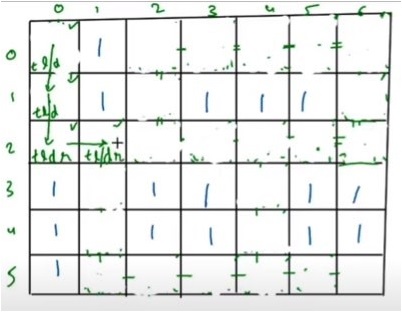 0 1 2 3 4 5 6
0 tl/d 1
1 tl/d 1 1 1 1
2 tldr tl/dr
3 1 1 1 1 1
4 1 1 1 1 1
5 1